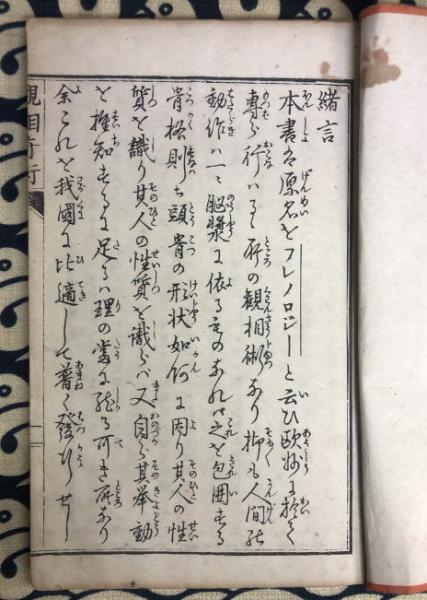 緒言
本書ハ原名をフレノロジーと云ひ欧州に於て
専ら行はるゝ所の観相術なり抑も人間の
動作は一に脳漿に依るものなれバ之を包囲する
骨格則ち頭骨の形状如何に因り其人の性
質を識り其人の性質を識らバ又自ら其挙動
を推知するに足るハ理の當に然る可き所なり
余これを我國に比適して普く發行せし